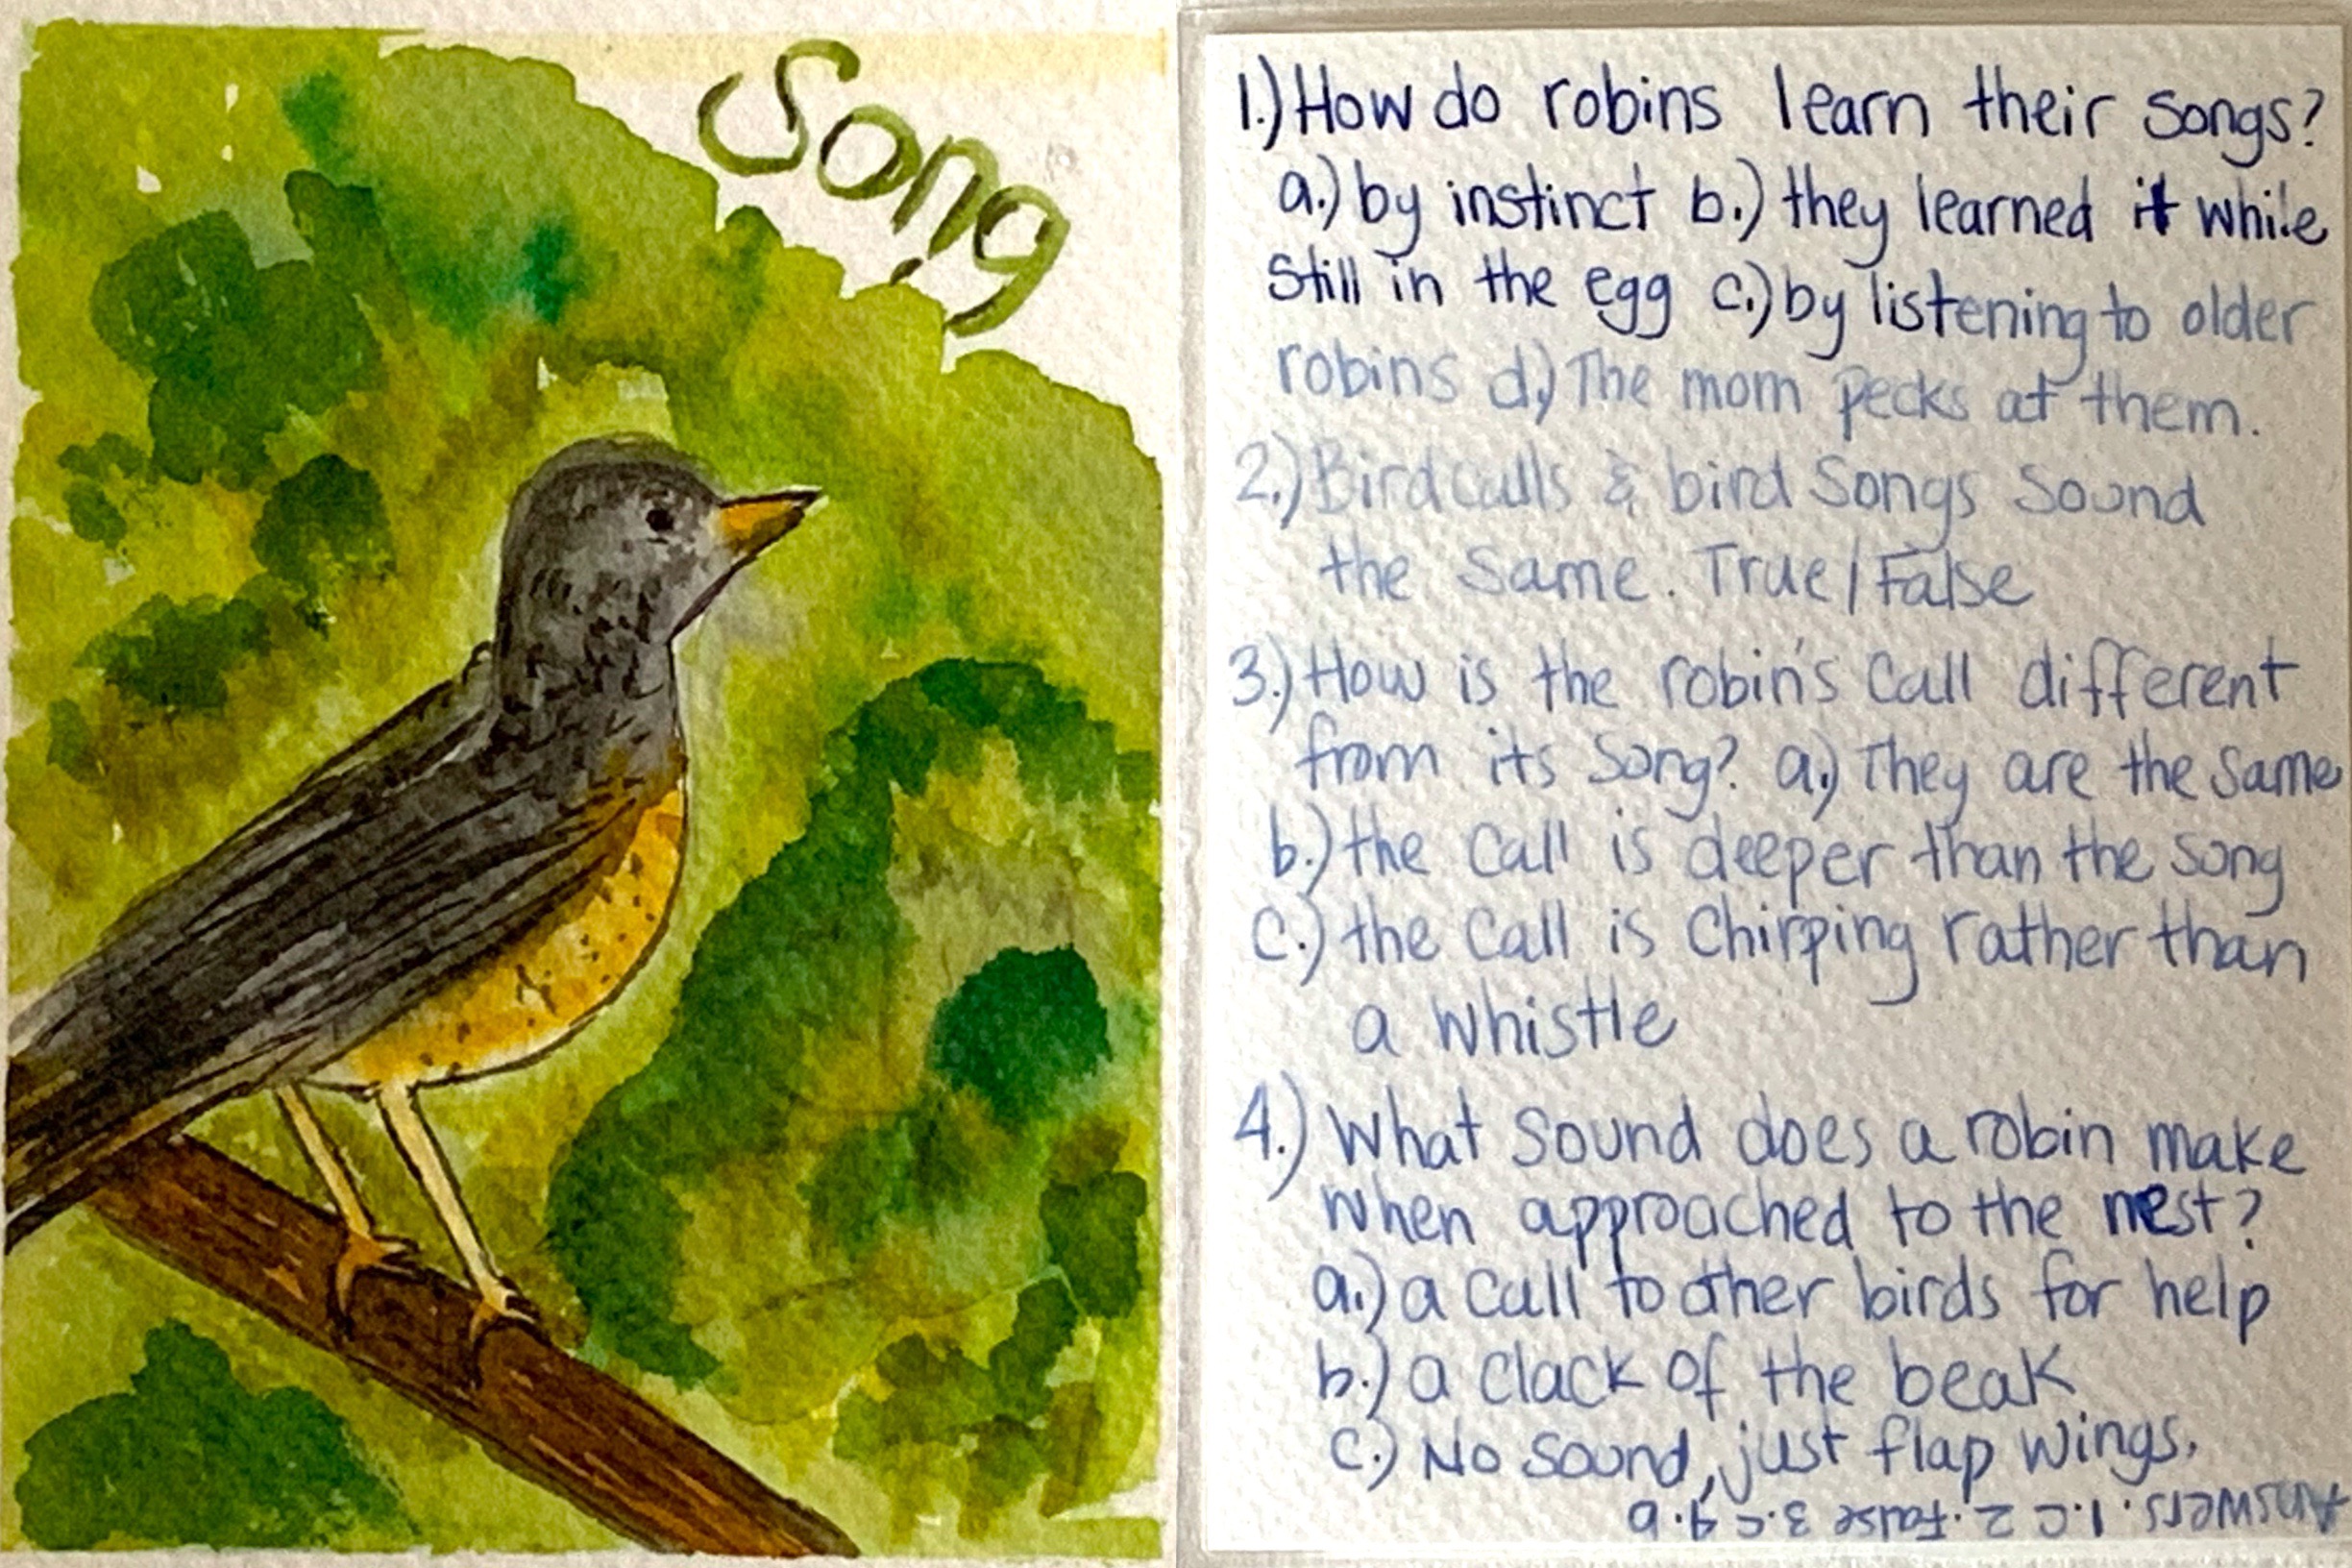 Song
1.) How do robins learn their songs?
a.) by instinct b.) they learned it while
still in the egg c.) by listening to older
robins d.) The mom pecks at them.
2.) Bird calls & bird songs sound
the same. True/False
3.) How is the robin's call different
from its song? a.) They are the same
b.) the call is deeper than the song
c.) the call is chirping rather than
a whistle
4.) What sound does a robin make
when approached to the nest?
a.) a call to other birds for help
b.) a clack of the beak
c.) No sound, just flap wings.
Answers. 1.c 2. False 3.c 4.b